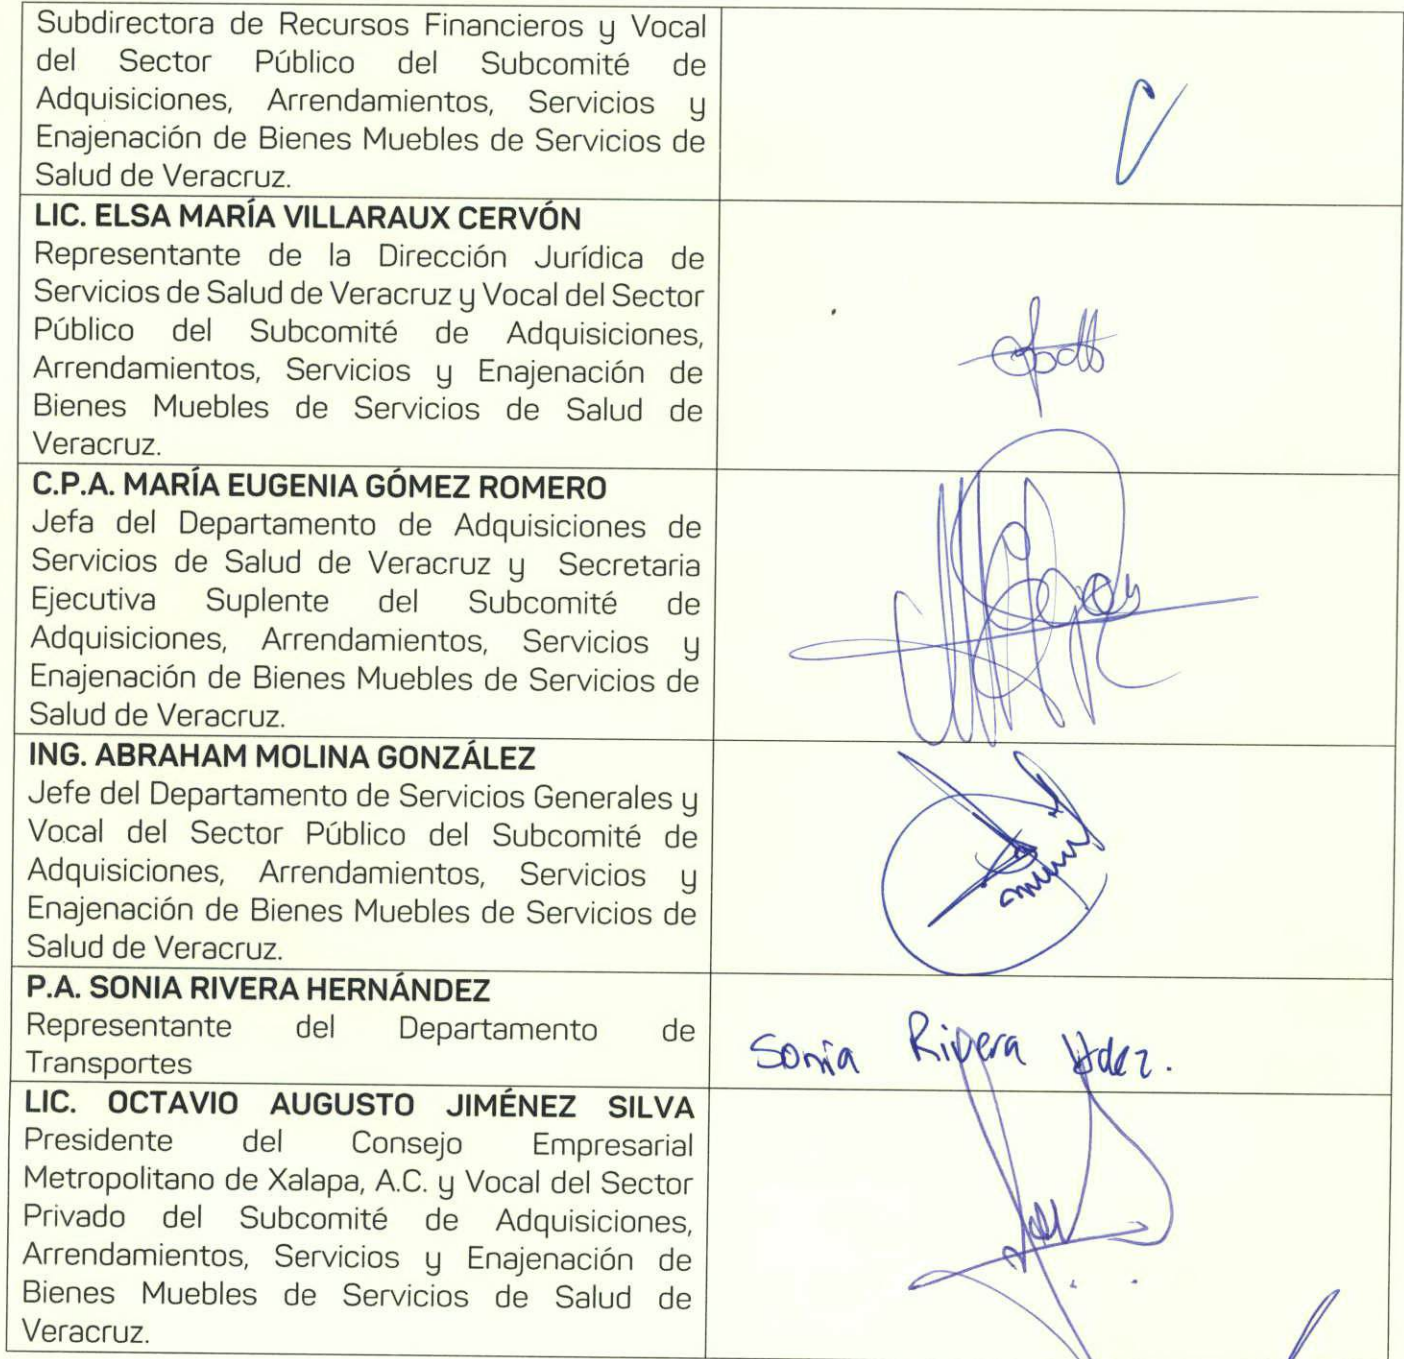 Subdirectora de Recursos Financieros y Vocal
del Sector Público del Subcomité de
Adquisiciones, Arrendamientos, Servicios y
Enajenación de Bienes Muebles de Servicios de
Salud de Veracruz.
LIC. ELSA MARÍA VILLARAUX CERVÓN
Representante de la Dirección Jurídica de
Servicios de Salud de Veracruz y Vocal del Sector
Público del Subcomité de Adquisiciones,
Arrendamientos, Servicios y Enajenación de
Bienes Muebles de Servicios de Salud de
Veracruz.
C.P.A. MARÍA EUGENIA GÓMEZ ROMERO
Jefa del Departamento de Adquisiciones de
Servicios de Salud de Veracruz y Secretaria
Ejecutiva Suplente del Subcomité de
Adquisiciones, Arrendamientos, Servicios y
Enajenación de Bienes Muebles de Servicios de
Salud de Veracruz.
ING. ABRAHAM MOLINA GONZÁLEZ
Jefe del Departamento de Servicios Generales y
Vocal del Sector Público del Subcomité de
Adquisiciones, Arrendamientos, Servicios y
Enajenación de Bienes Muebles de Servicios de
Salud de Veracruz.
P.A. SONIA RIVERA HERNÁNDEZ
Representante del Departamento de
Transportes
Sonia Rivera Hdez.
LIC. OCTAVIO AUGUSTO JIMÉNEZ SILVA
Presidente del Consejo Empresarial
Metropolitano de Xalapa, A.C. y Vocal del Sector
Privado del Subcomité de Adquisiciones,
Arrendamientos, Servicios y Enajenación de
Bienes Muebles de Servicios de Salud de
Veracruz.